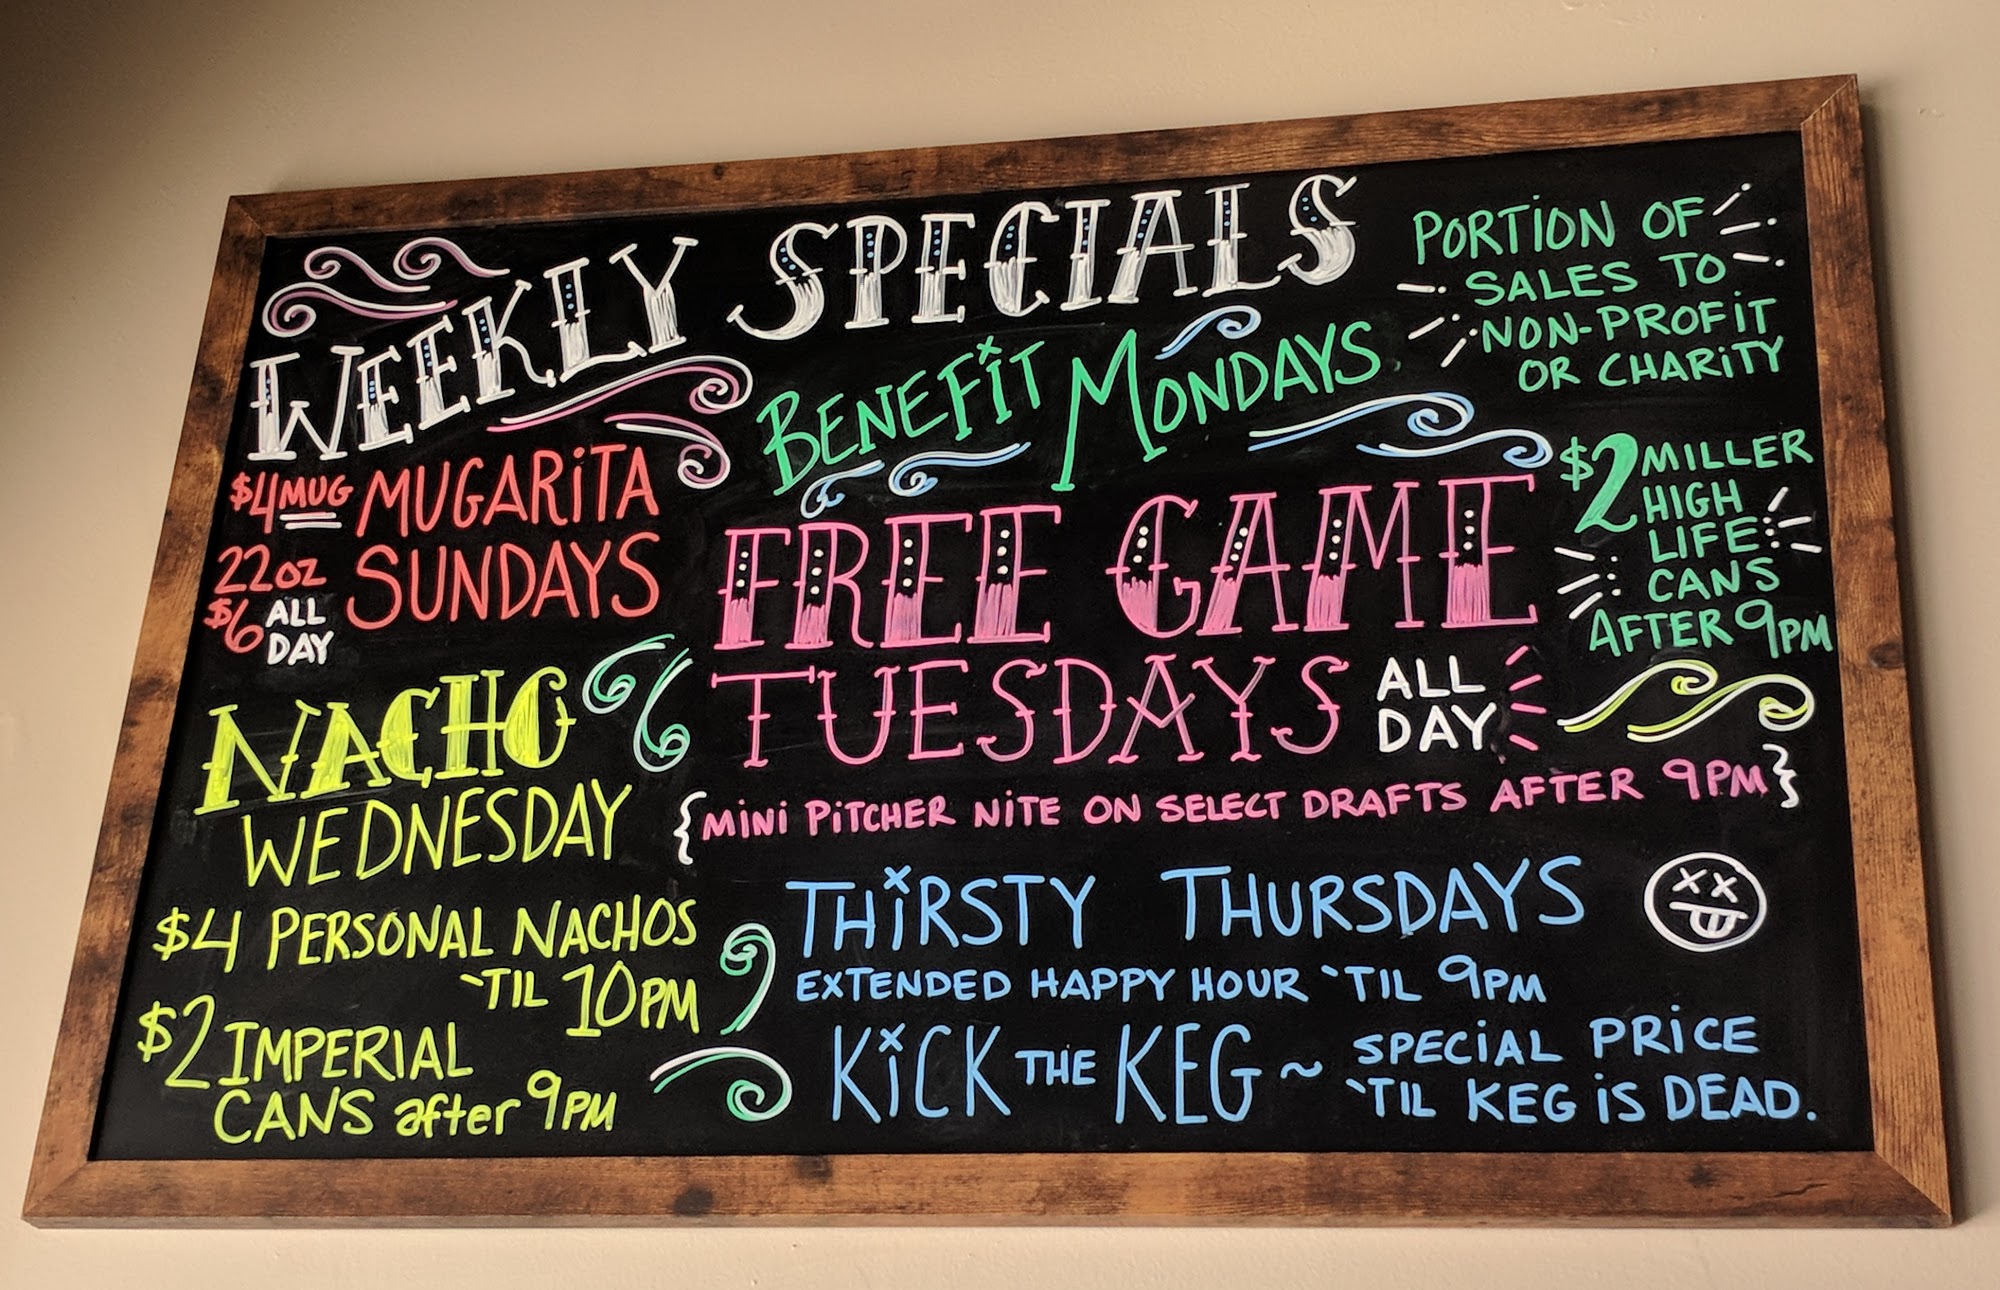 WEEKLY SPECIALS
$4 MUG MUGARITA
22oz SUNDAYS
$6 ALL
DAY
BENEFIT MONDAYS
PORTION OF
SALES TO
NON-PROFIT
OR CHARITY
$2 MILLER
HIGH
LIFE
CANS
AFTER 9PM
FREE GAME
TUESDAYS ALL
DAY
{MINI PITCHER NITE ON SELECT DRAFTS AFTER 9PM}
NACHO
WEDNESDAY
$4 PERSONAL NACHOS
'TIL 10PM
$2 IMPERIAL
CANS after 9PM
THIRSTY THURSDAYS
EXTENDED HAPPY HOUR 'TIL 9PM
KICK THE KEG ~ SPECIAL PRICE
'TIL KEG IS DEAD.